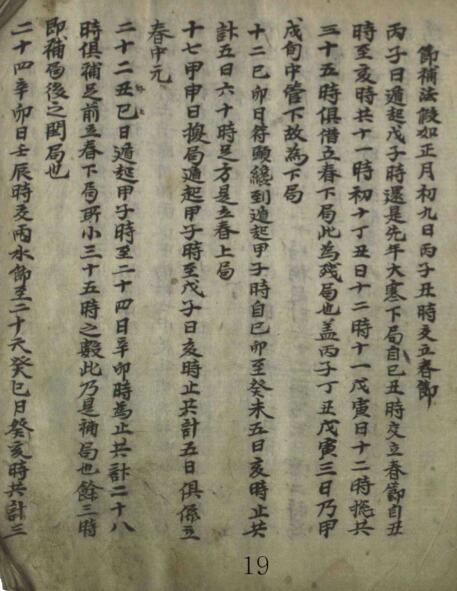 節補法假如正月初九日丙子丑時交立春節
丙子日遁起戊子時還是先年大寒下局自己丑時交立春節自丑
時至亥時共十一時初十丁丑日十二時十一戊寅日十二時搃共
三十五時俱借立春下局此為殘局也盖丙子丁丑戊寅三日乃甲
戌旬中管下故為下局
十二己卯日符頭纔到遁起甲子時自己卯至癸未五日亥時止共
計五日六十時足方是立春上局
十七甲申日換局遁起甲子時至戊子日亥時止共計五日俱係立
春中元
二十二丑巳日遁起甲子時至二十四日辛卯時為止共計二十八
時俱補足前立春下局所小三十五時之數此乃是補局也餘三時
即補局後之閏局也
二十四辛卯日壬辰時交雨水節至二十六癸巳日癸亥時共計三
19